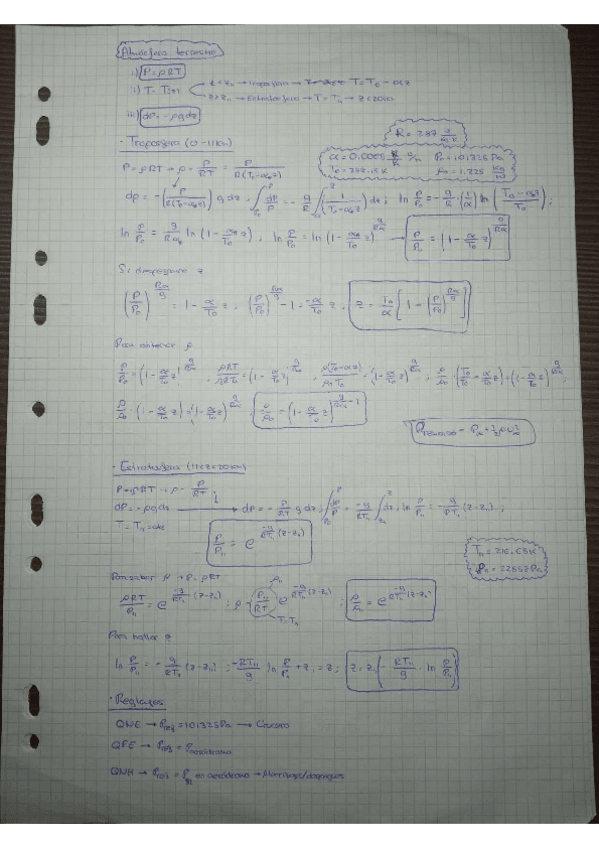 Atmósfera terrestre
i) P = ρRT
ii) T = T(z) z < z₁₁ → troposfera → T = T₀ - αz
z > z₁₁ → Estratosfera → T = T₁₁ → z < 20km
iii) dP = -ρgdz
· Troposfera (0-11km)
R = 287
T₀ = 288.15K P₀ = 101325Pa
ρ₀ = 1.225 kg/m³
P = ρRT → ρ = P/RT = P/R(T₀-αz)
dp = -(P/R(T₀-αz)) g dz, ∫dP/P = -g/R ∫(1/(T₀-αz)) dz; ln P/P₀ = -g/R · (1/α) ln((T₀-αz)/T₀);
ln P/P₀ = g/Rα ln(1 - αz/T₀), ln P/P₀ = ln(1 - α/T₀ z)^(g/Rα) → P/P₀ = (1 - α/T₀ z)^(g/Rα)
Si despejamos z
(P/P₀)^(Rα/g) = 1 - α/T₀ z, (P/P₀)^(Rα/g) - 1 = -α/T₀ z, z = T₀/α [1 - (P/P₀)^(Rα/g)]
Para obtener ρ
P/P₀ = (1 - α/T₀ z)^(g/Rα), ρRT/ρ₀RT₀ = (1 - α/T₀ z)^(g/Rα), ρ(T₀-αz)/ρ₀T₀ = (1 - α/T₀ z)^(g/Rα), ρ/ρ₀ · (T₀/T₀ - α/T₀ z) = (1 - α/T₀ z)^(g/Rα);
ρ/ρ₀ · (1 - α/T₀ z) = (1 - α/T₀ z)^(g/Rα), ρ/ρ₀ = (1 - α/T₀ z)^(g/Rα - 1)
P remanso = P∞ + ½ρU²∞
· Estratosfera (11<z<20km)
P = ρRT → ρ = P/RT
dP = -ρgdz → dP = -P/RT g dz, ∫dP/P = -g/RT₁₁ ∫dz, ln P/P₁₁ = -g/RT₁₁ (z-z₁₁);
T = T₁₁ = cte
P/P₁₁ = e^(-g/RT₁₁ (z-z₁₁))
T₁₁ = 216.65K
Para saber ρ → P = ρRT
ρRT/P₁₁ = e^(-g/RT₁₁ (z-z₁₁)); ρ = P₁₁/RT e^(-g/RT₁₁ (z-z₁₁)); ρ/ρ₁₁ = e^(-g/RT₁₁ (z-z₁₁))
ρ₁₁
T=T₁₁
Para hallar z
ln P/P₁₁ = -g/RT₁₁ (z-z₁₁); -RT₁₁/g ln P/P₁₁ + z₁₁ = z; z = z₁₁ - RT₁₁/g · ln P/P₁₁
· Reglajes
QNE → Pref = 101325Pa → Crucero
QFE → Pref = Paeródromo
QNH → Pref = P en aeródromo → Aterrizajes/despegues